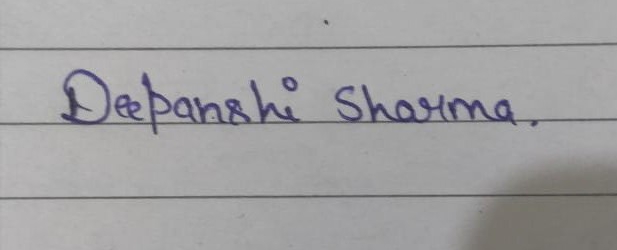 Deepanshi Sharma.